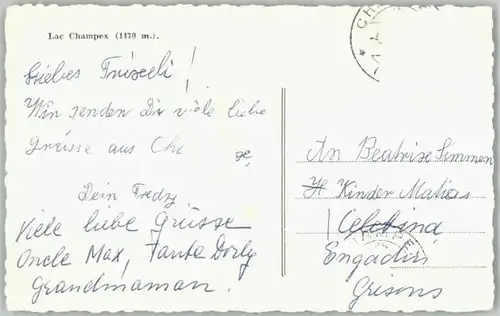 Lac Champex (1470 m).
Liebes Friseli!
Wir senden Dir viele liebe
Grüsse aus Cha
Dein Fredy
Viele liebe Grüsse
Oncle Max, Tante Dorly
Grandmaman.
An Beatrise Simmen
Kinder Mathis
Celerina
Engadin
Grisons